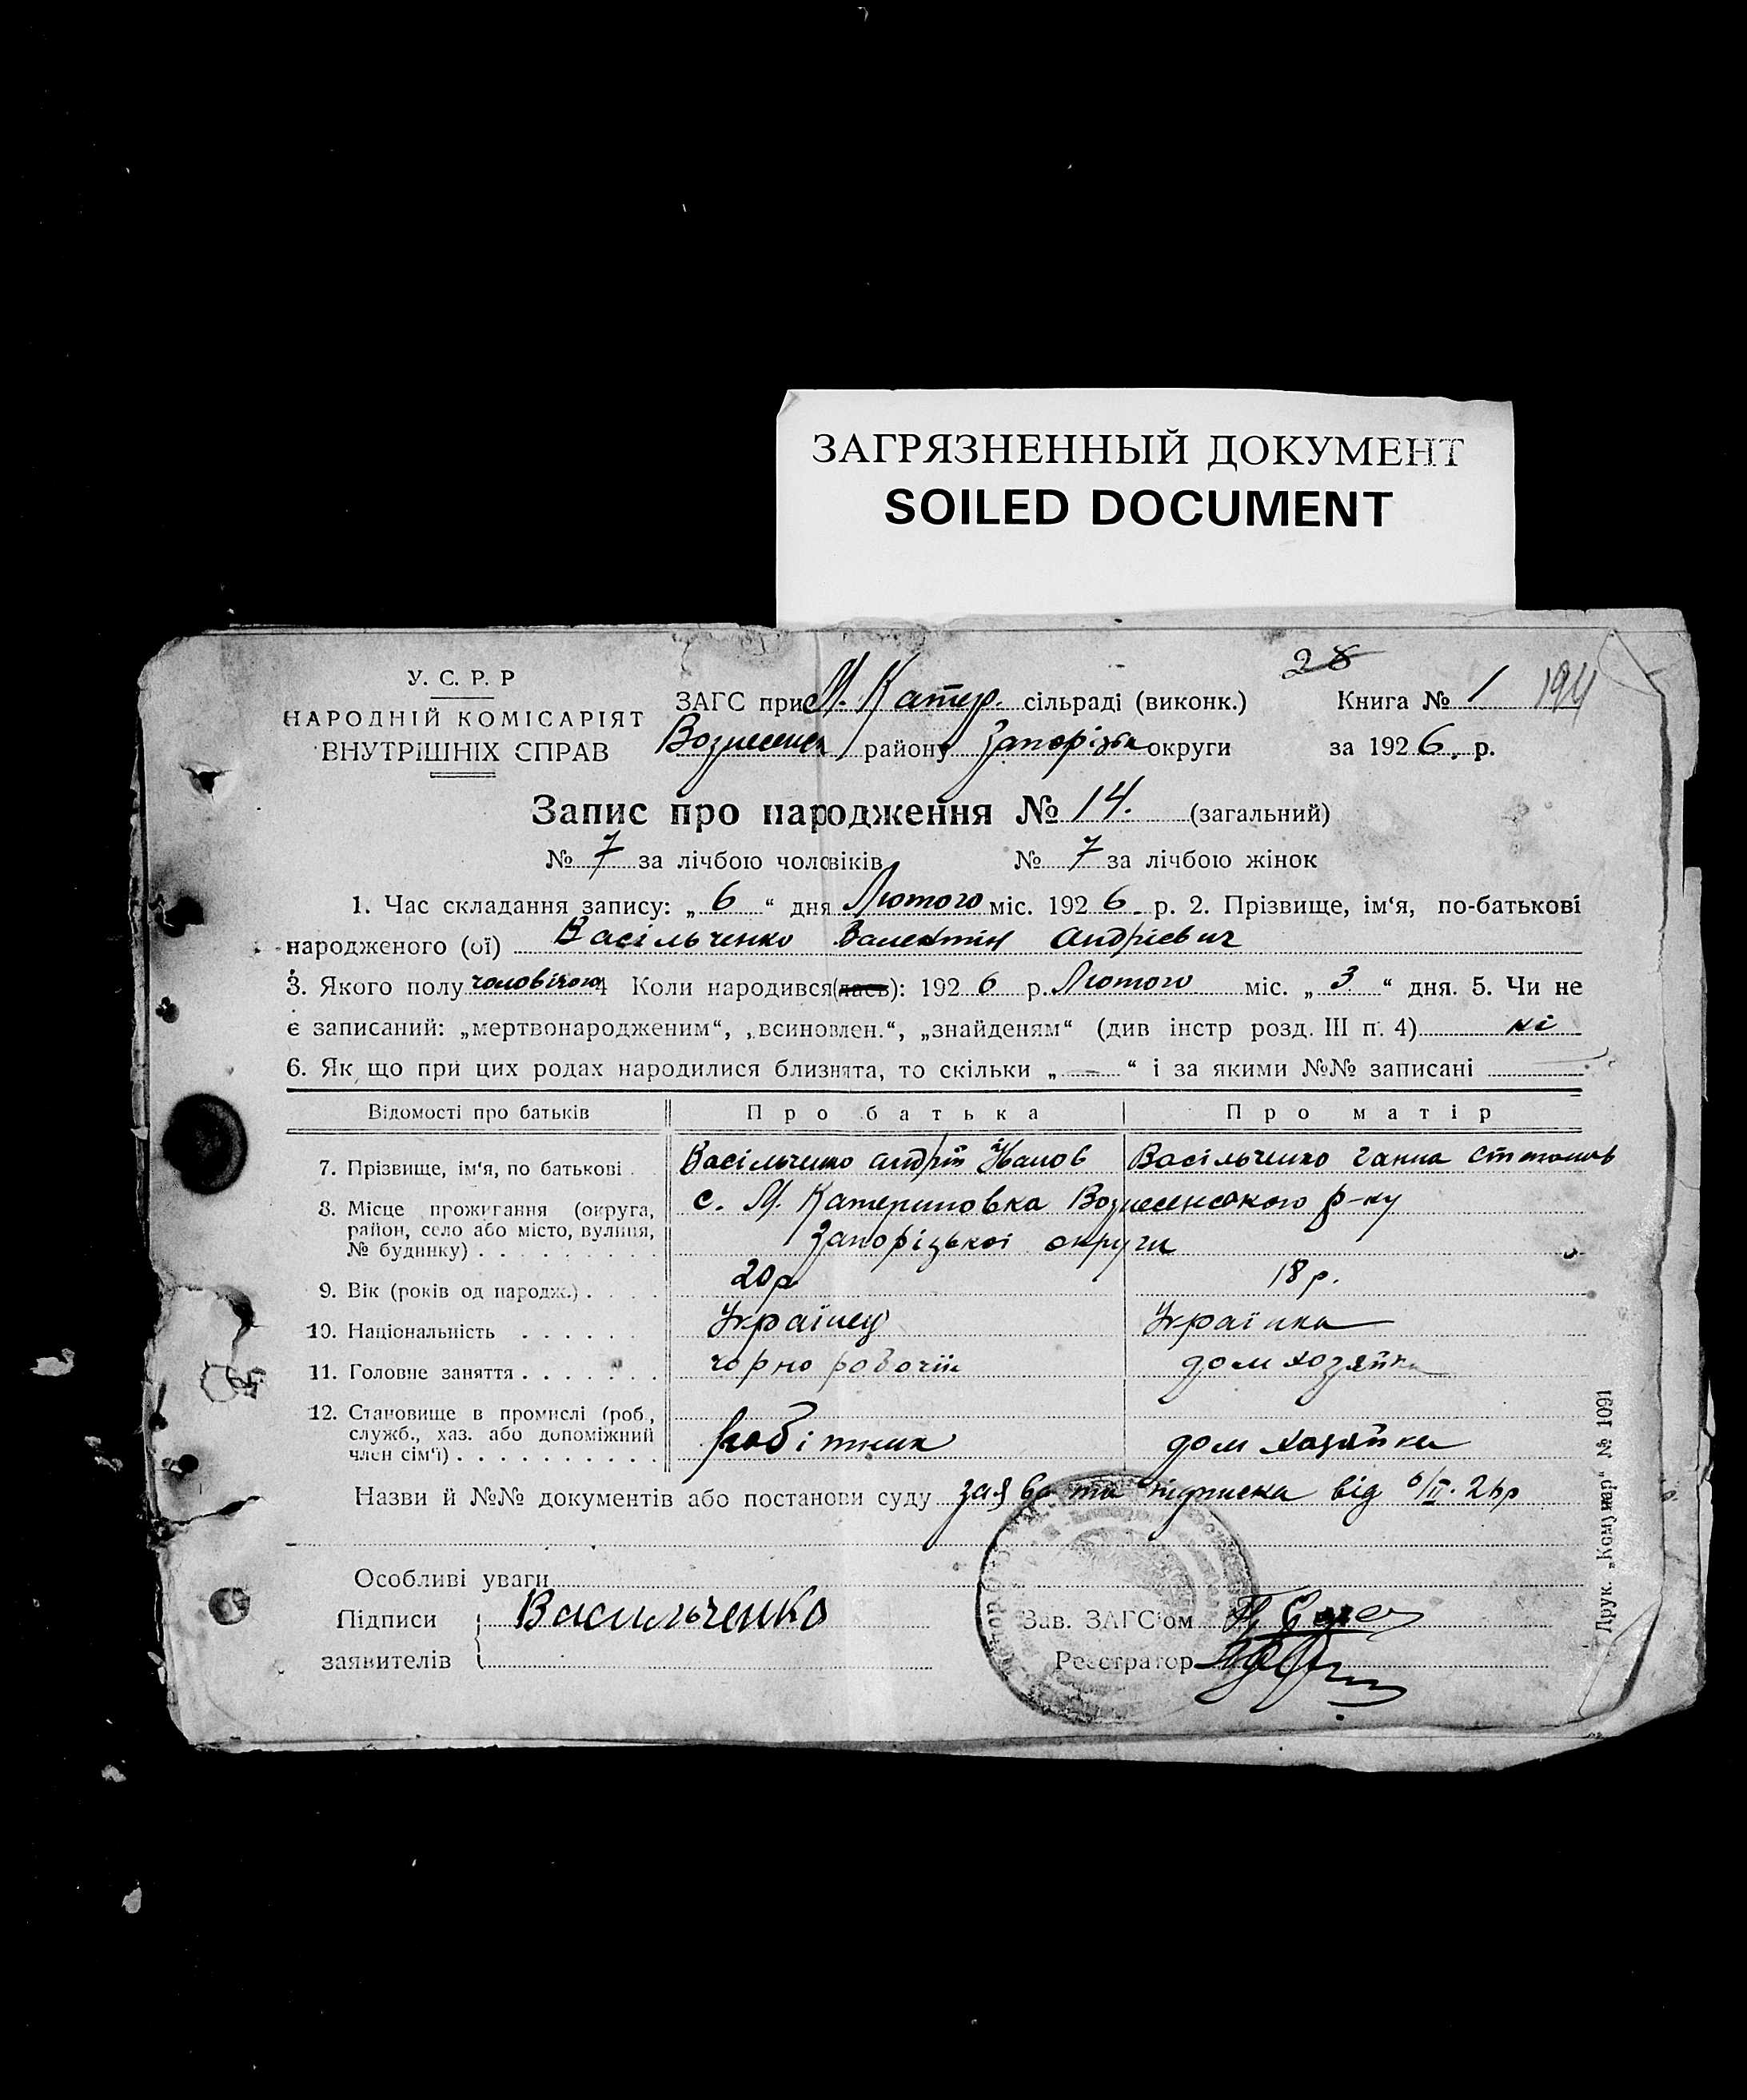 ЗАГРЯЗНЕННЫЙ ДОКУМЕНТ
SOILED DOCUMENT
28
У. С. Р. Р
НАРОДНІЙ КОМІСАРІЯТ
ВНУТРІШНІХ СПРАВ
ЗАГС при М. Катер. сільраді (виконк.)
Книга № 1 194
Вознесенськ району Запорізьк округи
за 1926. р.
Запис про народження № 14. (загальний)
№ 7 за лічбою чоловіків № 7 за лічбою жінок
1. Час складання запису: „ 6 “ дня Лютого міс. 1926. р. 2. Прізвище, ім‘я, по-батькові
народженого (ої) Васільченко Валентін Андрієвич
3. Якого полу чоловічого 4 Коли народився(лась): 1926 р. Лютого міс. „ 3 “ дня. 5. Чи не
є записаний: „мертвонародженим“, „всиновлен.“, „знайденям“ (див інстр розд. III п. 4) ні
6. Як що при цих родах народилися близнята, то скільки „ — “ і за якими №№ записані —
Відомості про батьків Про батька Про матір
7. Прізвище, ім‘я, по батькові . Васільченко Андрій Іванов Васільченко Ганна
8. Місце прожигання (округа, район, село або місто, вулиця, № будинку) . . . . . . . . . с. М. Катериновка Вознесенського р-ну
Запорізької округи
9. Вік (років од народж.) . . . . 20р 18 р.
10. Національність . . . . . . Українец Українка
11. Головне заняття . . . . . . . чорно робочій дом хозяйка
12. Становище в промислі (роб., служб., хаз. або допоміжний член сім‘ї) . . . . . . . . . . робітник дом хазяйка
Назви й №№ документів або постанови суду заява та підписка від 6/II. 26р
Особливі уваги
Підписи Васильченко
заявителів
Зав. ЗАГС‘ом
Реєстратор
Друк. „Комунар“ № 1091